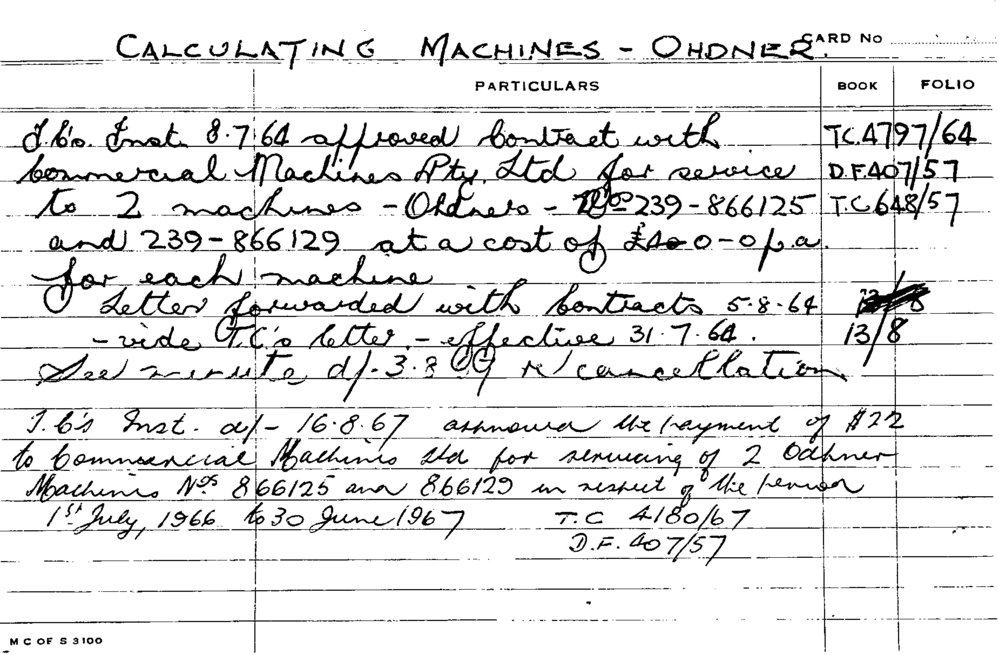 CALCULATING MACHINES - OHDNER. CARD No
PARTICULARS BOOK FOLIO
T.C's. Inst. 8.7.64 approved Contract with TC.4797/64
Commercial Machines Pty. Ltd for service D.F.407/57
to 2 machines - Ohdners - Nos 239-866125 T.C648/57
and 239-866129 at a cost of 0-0 p.a.
for each machine
Letter forwarded with Contracts 5.8.64
- vide T.C's letter. - effective 31.7.64. 13/8
See minute d/. 3.8 re cancellation
T.C's Inst. d/- 16.8.67 approved the payment of $22
to Commercial Machines Ltd for servicing of 2 Odhner
Machines Nos 866125 and 866129 in respect of the period
1st July, 1966 to 30 June 1967 T.C 4180/67
D.F. 407/57
M C OF S 3100